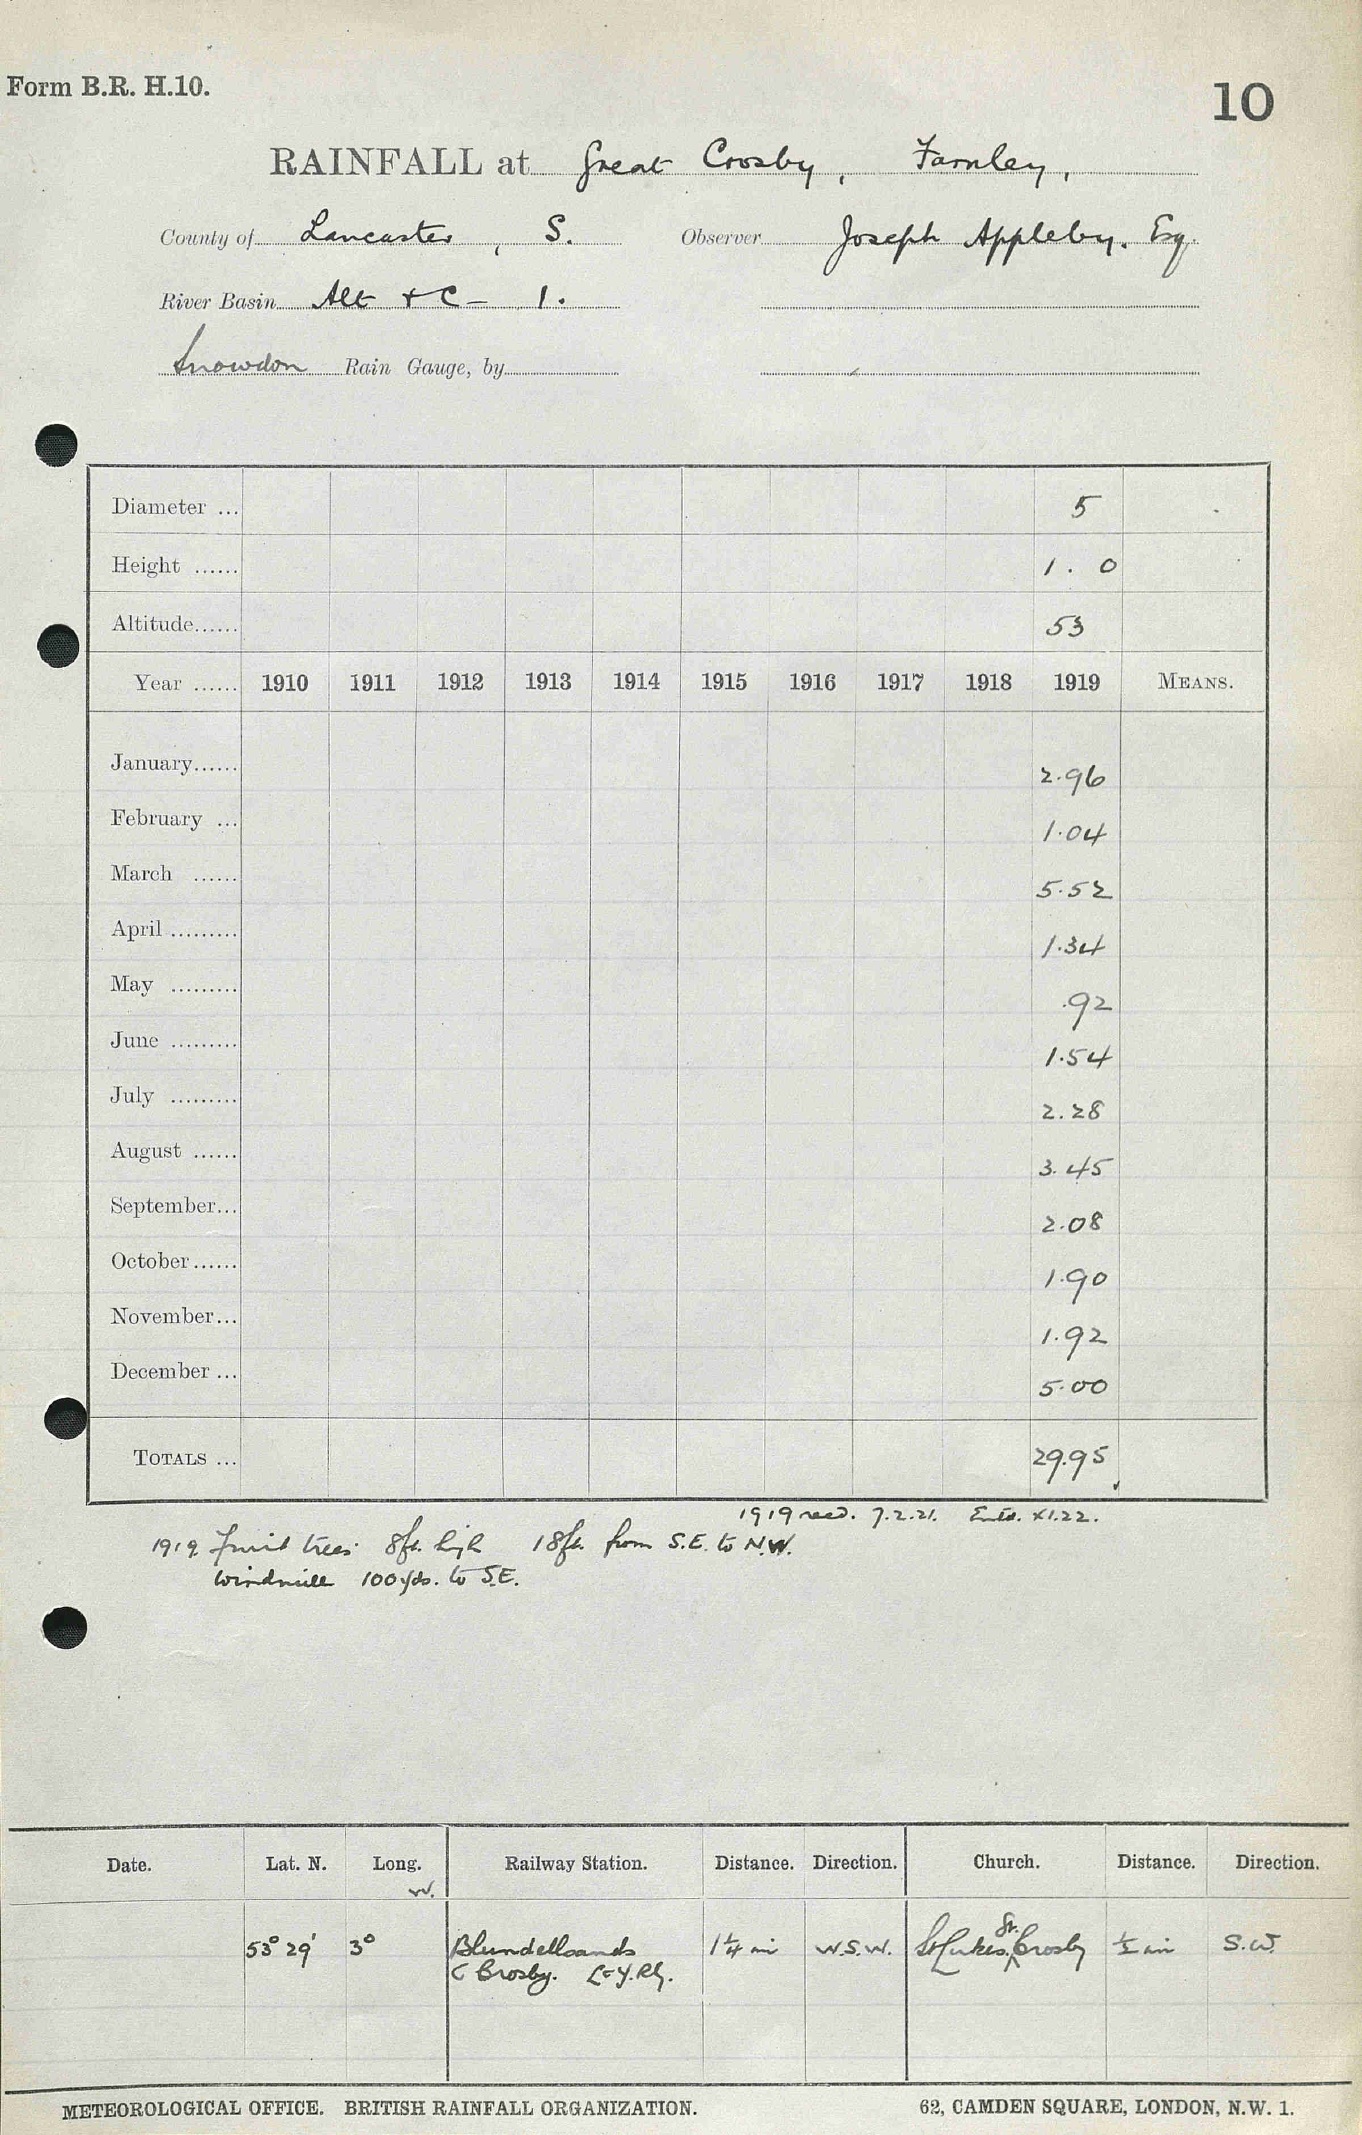 Form B.R. H.10.
10
RAINFALL at Great Crosby, Farnley,
County of Lancaster, S. Observer Joseph Appleby. Esq.
River Basin Alt & C— 1.
Snowdon Rain Gauge, by
Diameter ... 5
Height ...... 1. 0
Altitude...... 53
Year ...... 1910 1911 1912 1913 1914 1915 1916 1917 1918 1919 MEANS.
January...... 2.96
February ... 1.04
March ...... 5.52
April ......... 1.34
May ......... .92
June ......... 1.54
July ......... 2.28
August ...... 3.45
September... 2.08
October...... 1.90
November... 1.92
December ... 5.00
TOTALS ... 29.95
1919 recd. 7.2.21. Entd. XI.22.
1919 Fruit trees 8ft. high 18ft. from S.E. to N.W.
Windmill 100 yds. to S.E.
Date. Lat. N. Long. W. Railway Station. Distance. Direction. Church. Distance. Direction.
53° 29' 3° Blundellsands 1¼ mi W.S.W. St Lukes, Gt. Crosby ½ mi S.W.
& Crosby. L & Y. Rly.
METEOROLOGICAL OFFICE. BRITISH RAINFALL ORGANIZATION. 62, CAMDEN SQUARE, LONDON, N.W. 1.